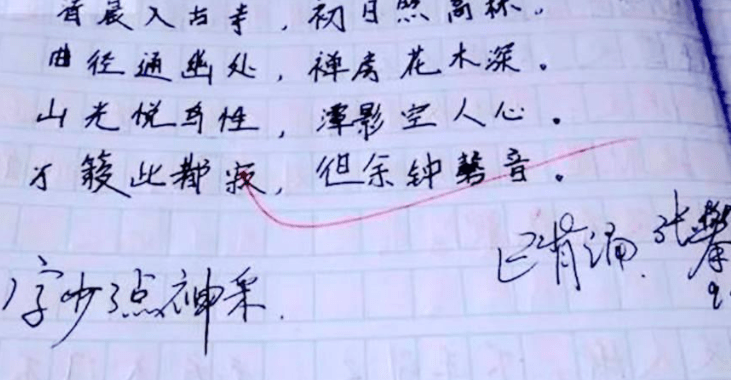 晨入古寺，初日照高林。
曲径通幽处，禅房花木深。
山光悦鸟性，潭影空人心。
万籁此都寂，但余钟磬音。
已背诵. 张攀
字少了点神采.